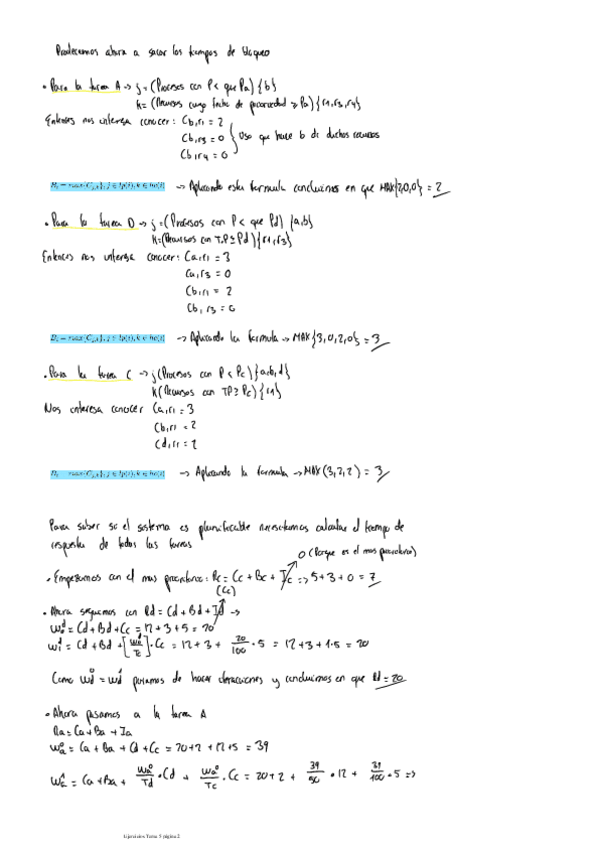 Procederemos ahora a sacar los tiempos de bloqueo
• Para la tarea A → j = (Procesos con P < que Pa) {b}
k = (Recursos cuyo techo de prioridad ≥ Pa) {r1, r3, r4}
Entonces nos interesa conocer: Cb,r1 = 2
Cb,r3 = 0 } Uso que hace b de dichos recursos
Cb,r4 = 0
→ Aplicando esta formula concluimos en que MAX{2,0,0} = 2
• Para la tarea D → j = (Procesos con P < que Pd) {a,b}
k = (Recursos con T.P ≥ Pd) {r1, r3}
Entonces nos interesa conocer: Ca,r1 = 3
Ca,r3 = 0
Cb,r1 = 2
Cb,r3 = 0
→ Aplicando la formula → MAX{3,0,2,0} = 3
• Para la tarea C → j (Procesos con P < Pc) {a,b,d}
k (Recursos con TP ≥ Pc) {r1}
Nos interesa conocer Ca,r1 = 3
Cb,r1 = 2
Cd,r1 = 2
→ Aplicando la formula → MAX(3,2,2) = 3
Para saber si el sistema es planificable necesitamos calcular el tiempo de
respuesta de todas las tareas
0 (Porque es el mas prioritario)
• Empezamos con el mas prioritario: Rc = Cc + Bc + Ic => 5+3+0 = 7
(Cc)
• Ahora seguimos con Rd = Cd + Bd + Id →
Wd0 = Cd + Bd + Cc = 12 + 3 + 5 = 20
Wd1 = Cd + Bd + [Wd0/Tc] · Cc = 12 + 3 + 20/100 · 5 = 12 + 3 + 1·5 = 20
Como Wd0 = Wd1 paramos de hacer iteraciones y concluimos en que Rd = 20
• Ahora pasamos a la tarea A
Ra = Ca + Ba + Ia
Wa0 = Ca + Ba + Cd + Cc = 20+2 + 12+5 = 39
Wa1 = Ca + Ba + Wa0/Td · Cd + Wa0/Tc · Cc = 20+2 + 39/50 · 12 + 39/100 · 5 =>
Ejercicios Tema 5 página 2